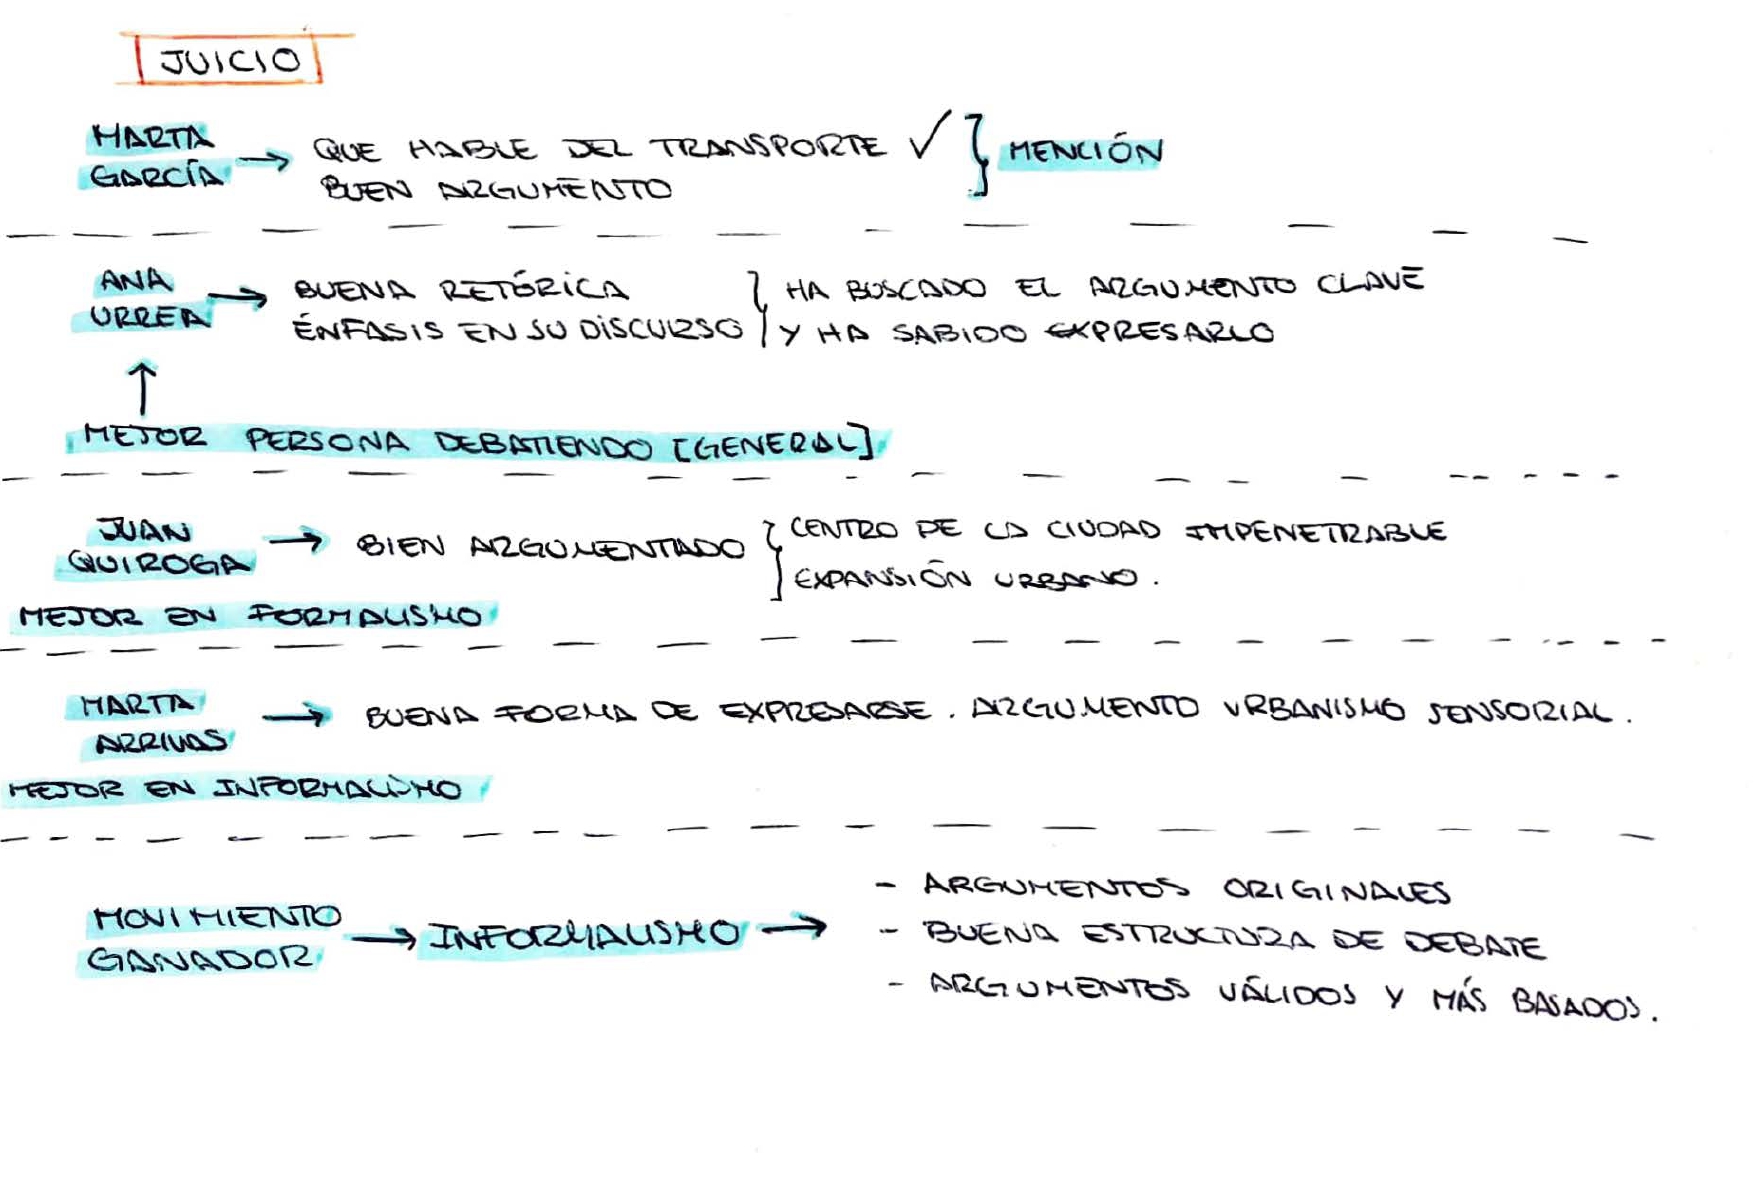 JUICIO
MARTA GARCÍA → QUE HABLE DEL TRANSPORTE ✓ } MENCIÓN
BUEN ARGUMENTO
ANA URREA → BUENA RETÓRICA } HA BUSCADO EL ARGUMENTO CLAVE
ÉNFASIS EN SU DISCURSO Y HA SABIDO EXPRESARLO
↑
MEJOR PERSONA DEBATIENDO [GENERAL]
JUAN QUIROGA → BIEN ARGUMENTADO { CENTRO DE LA CIUDAD IMPENETRABLE
EXPANSIÓN URBANO.
MEJOR EN FORMALISMO
MARTA ARRIVAS → BUENA FORMA DE EXPRESARSE. ARGUMENTO URBANISMO SENSORIAL.
MEJOR EN INFORMALISMO
MOVIMIENTO GANADOR → INFORMALISMO →
- ARGUMENTOS ORIGINALES
- BUENA ESTRUCTURA DE DEBATE
- ARGUMENTOS VÁLIDOS Y MÁS BASADOS.